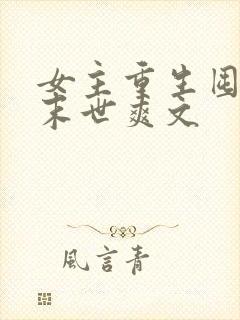 女主重生囤
末世爽文
風言青